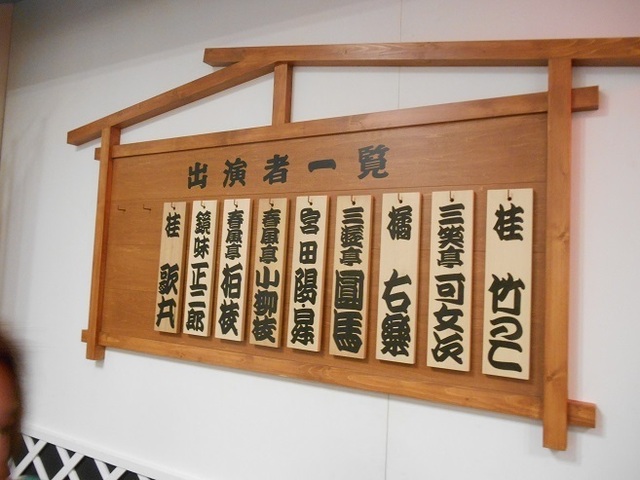 出演者一覧
桂 竹つ仁
三笑亭 可女次
橘 右樂
三遊亭 圓馬
宮田 陽・昇
春風亭 小柳枝
春風亭 柏枝
鏡味 正二郎
桂 歌丸